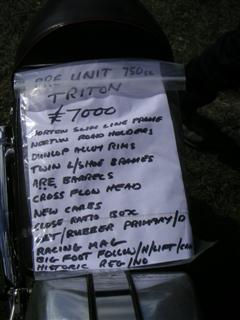 PRE UNIT 750cc
TRITON
£7000
NORTON SLIM LINE FRAME
NORTON ROAD HOLDERS
DUNLOP ALLOY RIMS
TWIN L/SHOE BRAKES
ARE BARRELS
CROSS FLOW HEAD
NEW CARBS
CLOSE RATIO BOX
/RUBBER PRIMARY/D
RACING MAG
BIG FOOT FOLLOW/N/LIFT/CAM
HISTORIC REG/NO